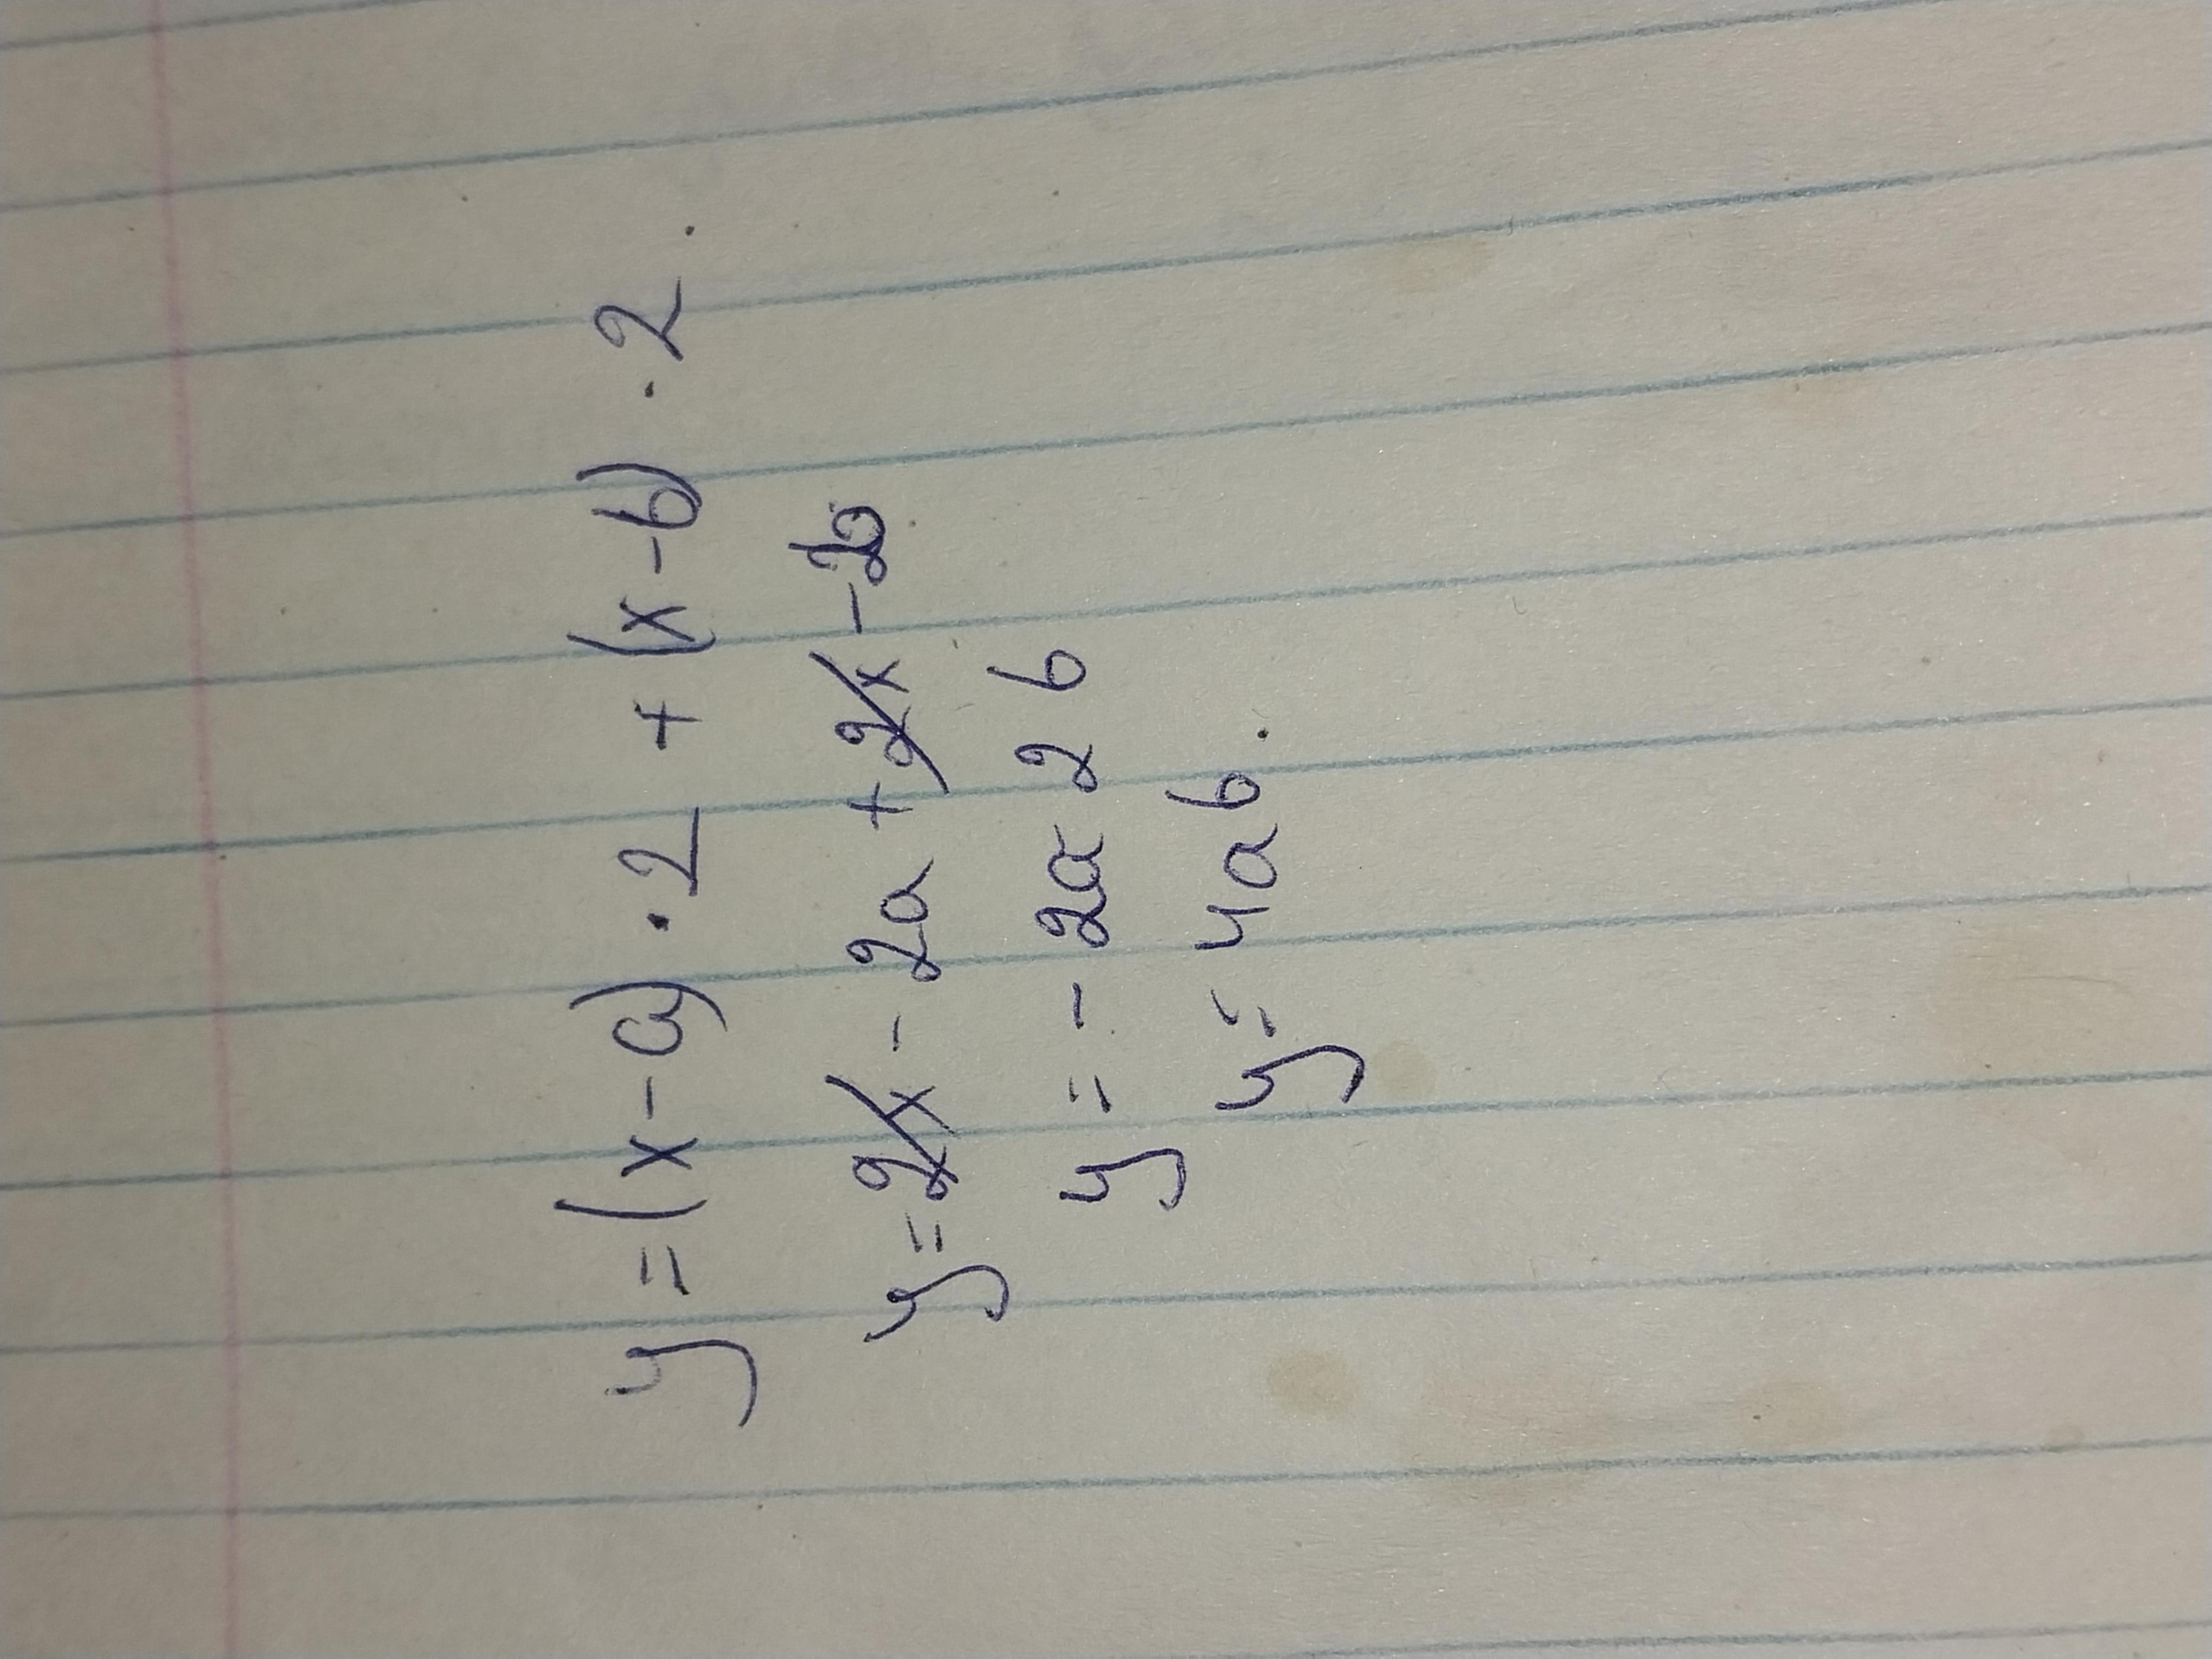 y = (x - a) · 2 + (x - b) · 2.
y = 2x - 2a + 2x - 2b
y = - 2a 2 b
y = 4 a b.